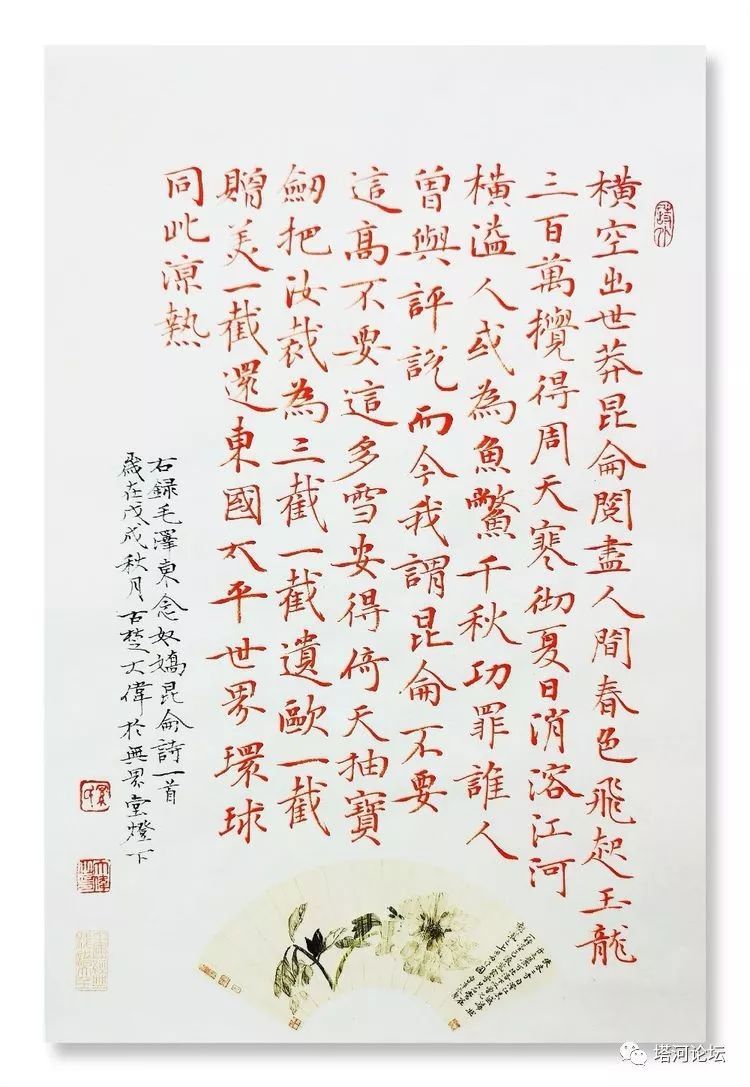 橫空出世莽昆侖閱盡人間春色飛起玉龍
三百萬攪得周天寒彻夏日消溶江河
橫溢人或為魚鱉千秋功罪誰人
曾與評說而今我謂昆侖不要
這高不要這多雪安得倚天抽寶
劍把汝裁為三截一截遺歐一截
贈美一截還東國太平世界環球
同此涼熱
右録毛澤東念奴嬌昆侖詩一首
歲在戊戌秋月古楚大偉於無界堂燈下
塔河论坛